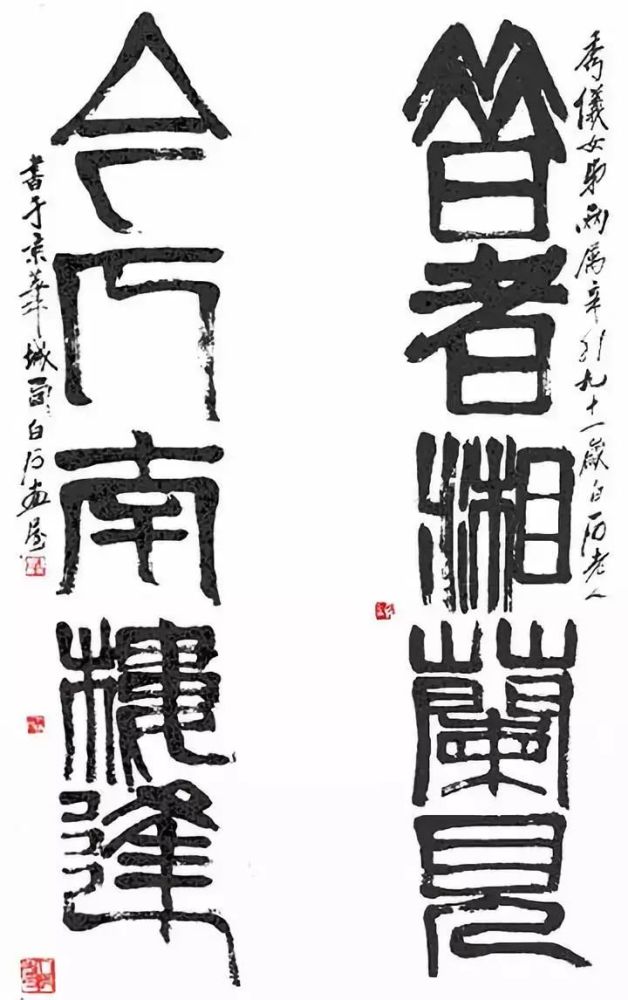 秀儀女弟兩屬辛卯九十一歲白石老人
昔者湘蘭見
今南樓逢
書于京華城西白石畫屋